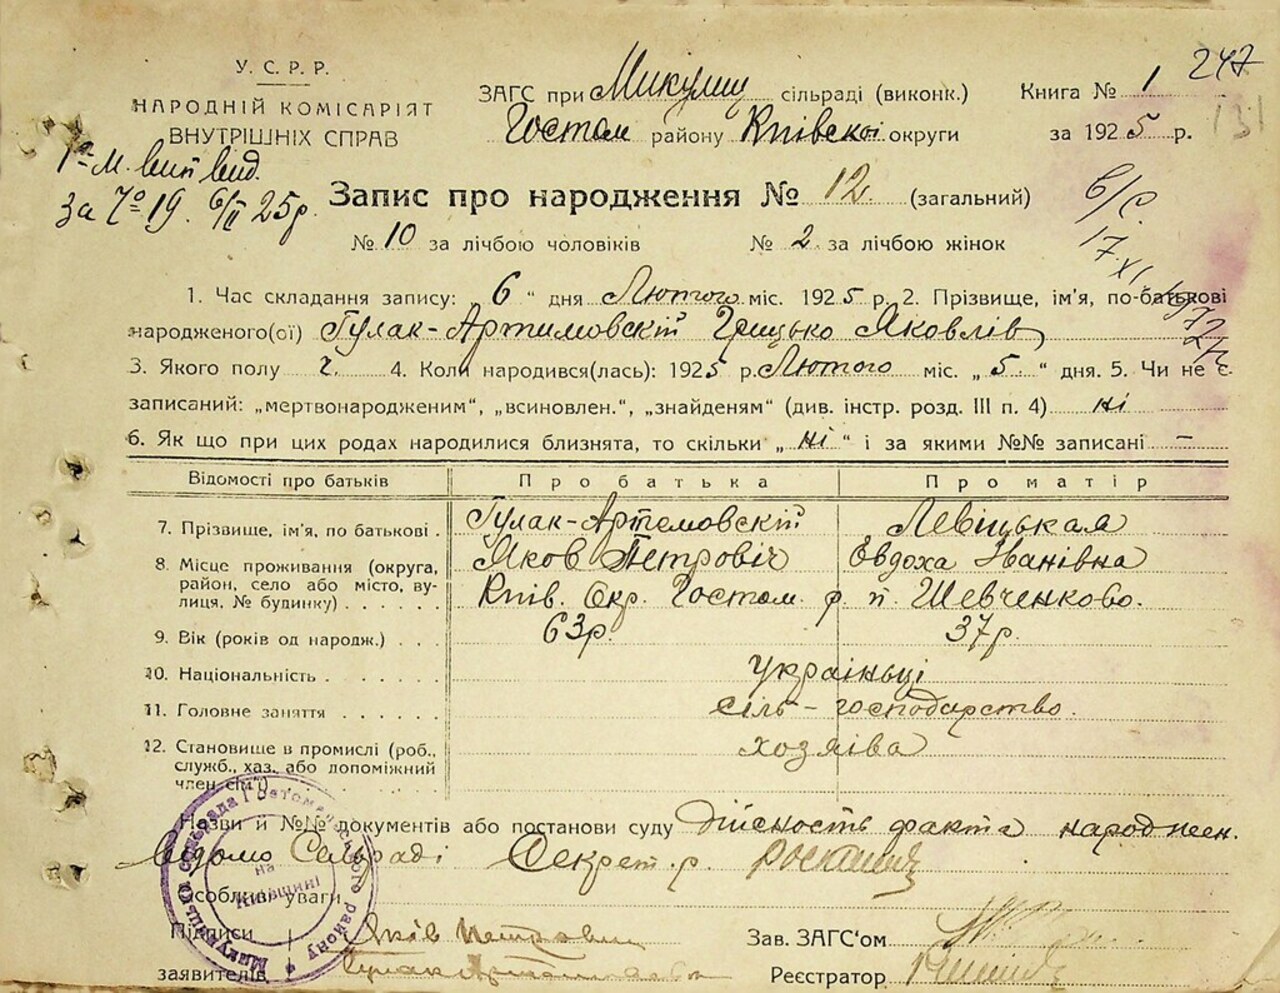 247
У. С. Р. Р.
НАРОДНІЙ КОМІСАРІЯТ
ВНУТРІШНІХ СПРАВ
ЗАГС при Микулиц сільраді (виконк.)
Гостом району Київської округи
Книга № 1
за 1925 р.
131
за № 19. 6/II 25р.
Запис про народження № 12. (загальний)
№ 10 за лічбою чоловіків № 2 за лічбою жінок
1. Час складання запису: „ 6 “ дня Лютого міс. 1925 р. 2. Прізвище, ім'я, по-батькові
народженого(ої) Гулак-Артимовскій Грицько Яковлів
3. Якого полу ч. 4. Коли народився(лась): 1925 р. Лютого міс. „ 5. “ дня. 5. Чи не є
записаний: „мертвонародженим“, „всиновлен.“, „знайденям“ (див. інстр. розд. III п. 4) ні
6. Як що при цих родах народилися близнята, то скільки „ ні “ і за якими №№ записані —
Відомості про батьків Про батька Про матір
7. Прізвище, ім'я, по батькові . Гулак-Артемовскій Левіцькая
Яков Петровіч Евдоха Іванівна
8. Місце проживання (округа,
район, село або місто, ву-
лиця, № будинку) . . . . . . Київ. Окр. Гостом. р. п. Шевченково.
9. Вік (років од народж.) . . . 63р. 37р.
10. Національність . . . . . . Українці
11. Головне заняття . . . . . . сіль-господарство.
12. Становище в промислі (роб.,
служб., хаз., або допоміжний
член сім'ї) хозяіва
Назви й №№ документів або постанови суду Дійсность факта народжен.
відомо Сельраді Секрет.р.
Особливі уваги
Підписи
заявителів
Яків Петрович
Зав. ЗАГС'ом
Реєстратор
на
Київщині